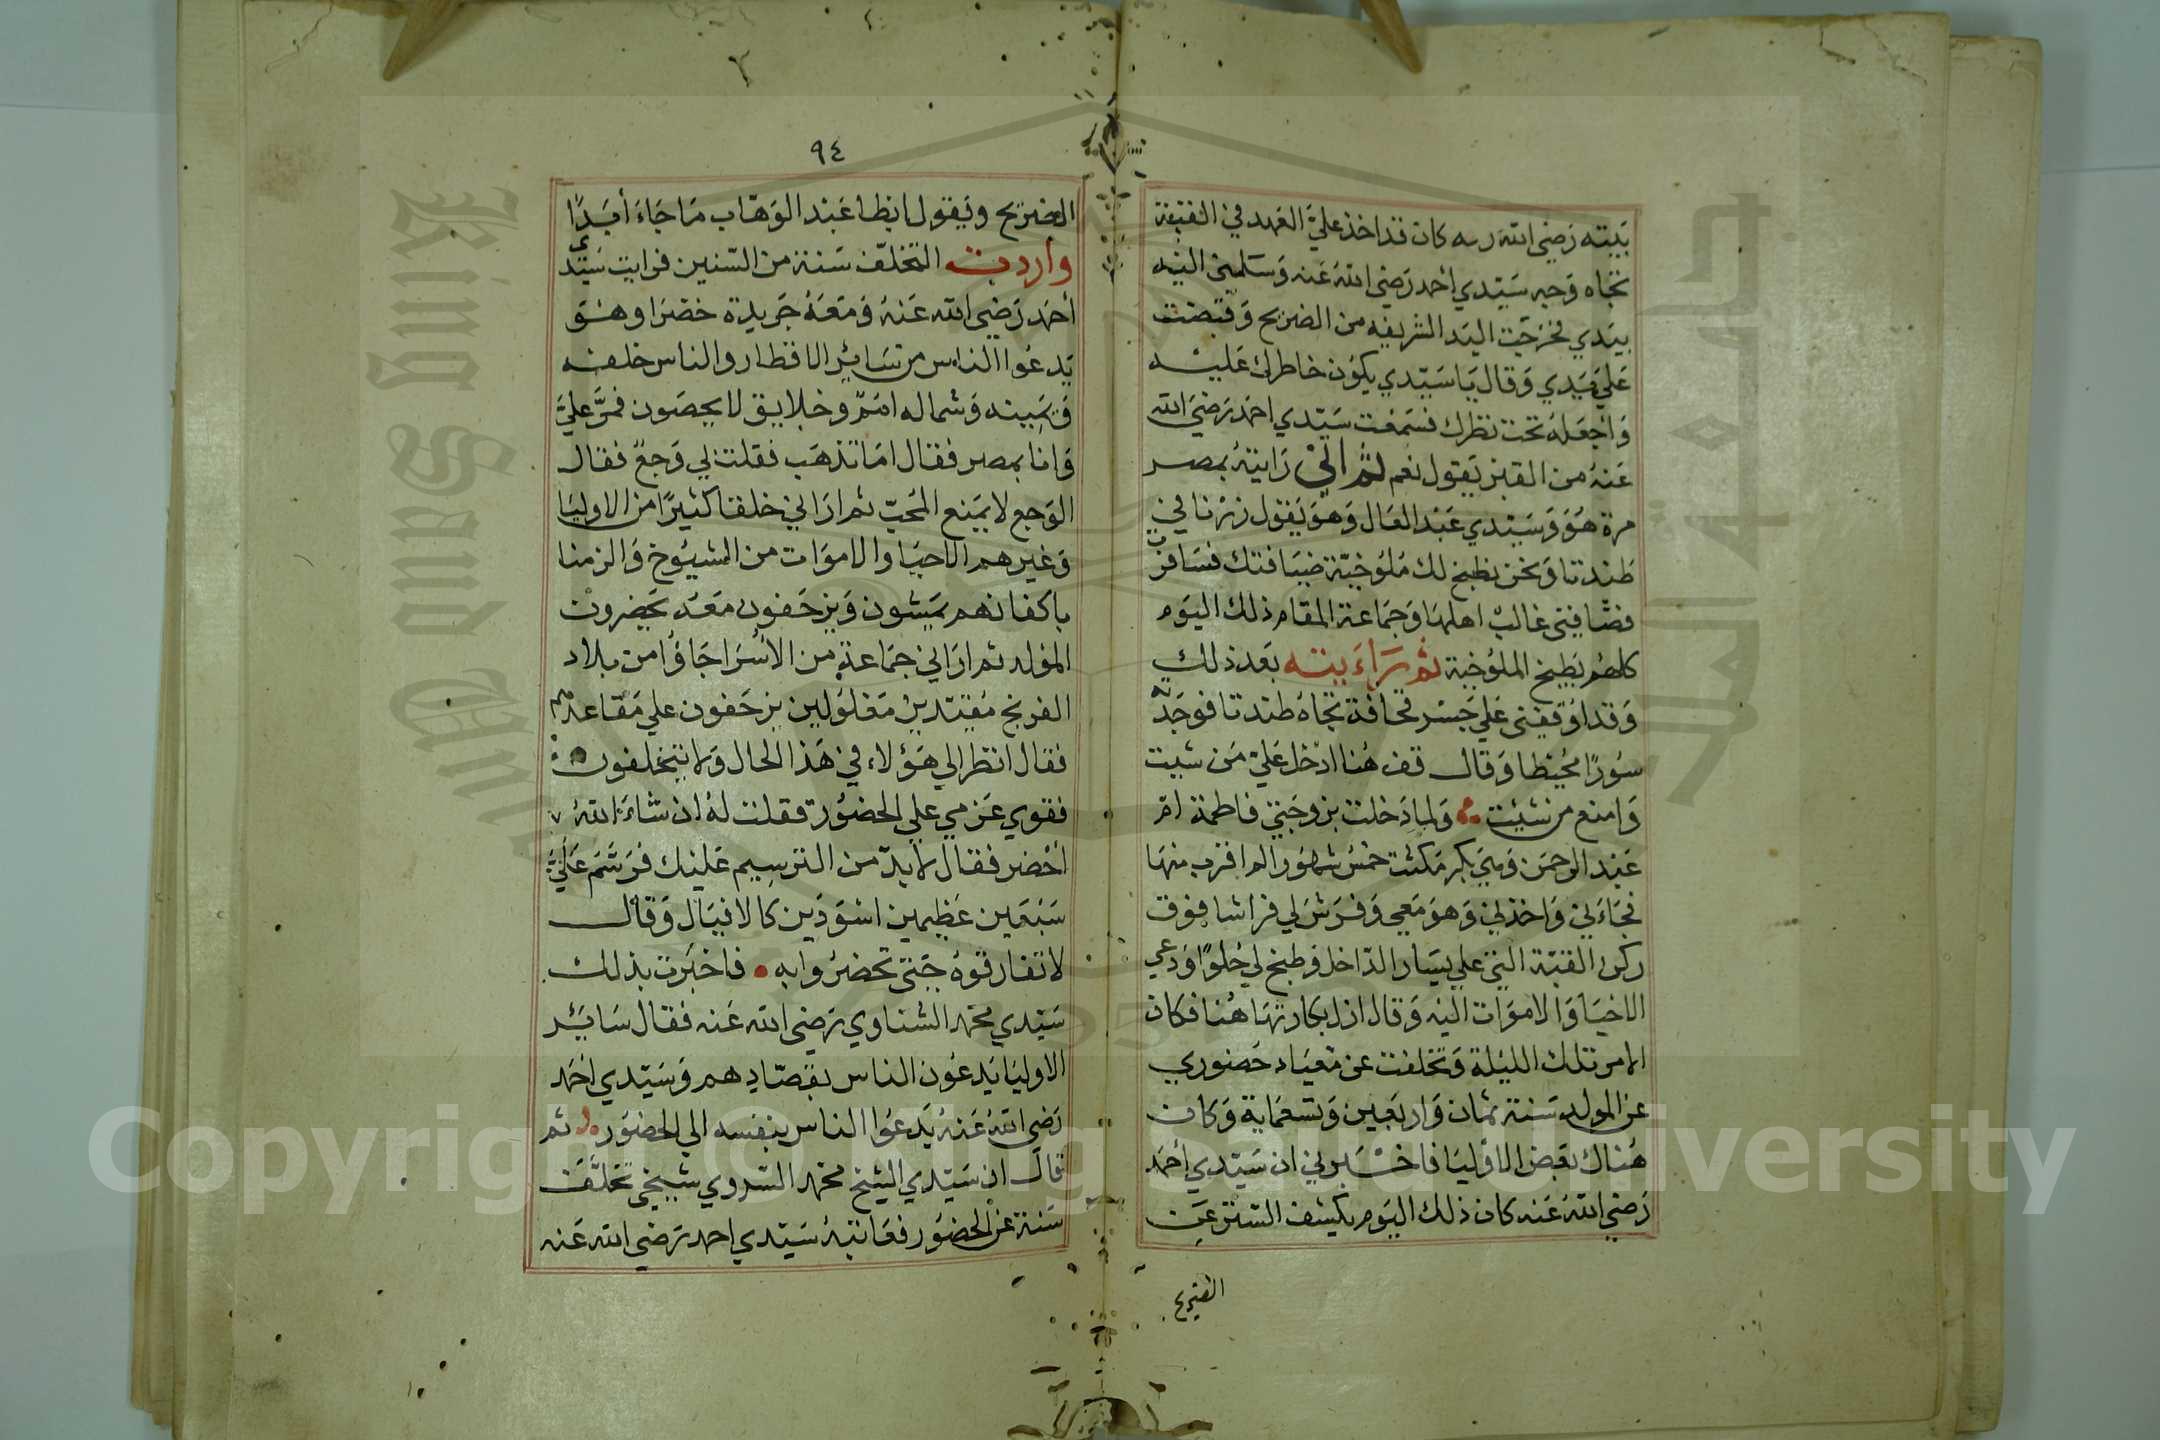 بيته رضي الله
كان قد اخذ عليّ العهد في القبة
تجاه وجه سيدي أحمد رضي الله عنه وسلمني اليه
بيدي فخرجت اليد الشريفه من الضريح وقبضت
علي يدي وقال يا سيدي يكون خاطرك عليه
واجعله تحت نظرك فسمعت سيدي احمد رضي الله
عنه من القبر يقول نعم ثم اني رايته بمصر
مرة هو وسيدي عبد العال وهو يقول زرنا في
طندتا ونحن نطبخ لك ملوخية ضيافتك فسافرت
فضافني غالب اهلها وجماعة المقام ذلك اليوم
كلهم بطبيخ الملوخية ثم رأيته بعد ذلك
وقد اوقفني علي جسر قحافة تجاه طندتا فوجدته
سورًا محيطا وقال قف هنا ادخل عليّ من شيت
وامنع من شئت ولما دخلت بزوجتي فاطمة ام
عبد الرحمن وهي بكر مكثت خمس شهور لم اقرب منها
فجاءني واخذني وهو معي وفرش لي فراشا فوق
ركن القبة التي علي يسار الداخل وطبخ لي حلوًا ودعي
الاحيا والاموات اليه وقال ازل بكارتها هنا فكان
الامر تلك الليلة وتخلفت عن ميعاد حضوري
عن المولد سنة ثمان واربعين وتسعماية وكان
هناك بعض الاوليا فاخبرني ان سيدي أحمد
رضي الله عنه كان ذلك اليوم يكشف الستر عن
الضريح
٩٤
الضريح ويقول ابطا عبد الوهاب ما جاء أبدًا
واردت التخلف سنة من السنين فرايت سيدي
أحمد رضي الله عنه ومعه جريدة خضرا وهو
يدعوا الناس من سائر الاقطار والناس خلفه
ويمينه وشماله امم وخلايق لا يحصون فمر عليّ
وانا بمصر فقال اما تذهب فقلت لي وجع فقال
الوجع لا يمنع المحب ثم اراني خلقا كثيرًا من الاوليا
وغيرهم الاحيا والاموات من الشيوخ والزمنا
باكفانهم يمشون ويزحفون معه يحضرون
المولد ثم اراني جماعة من الأسرا جاؤا من بلاد
الفرنج مقيدين مغلولين يزحفون علي مقاعدهم
فقال انظر الي هؤلاء في هذا الحال ولا يتخلفون
فقوي عزمي علي الحضور فقلت له ان شاء الله
أحضر فقال لا بد من الترسيم عليك فرسم عليّ
سبعين عظيمين اسودين كالافيال وقال
لا تفارقوه حتى تحضروا به فاخبرت بذلك
سيدي محمد الشناوي رضي الله عنه فقال سائر
الاوليا يدعون الناس بقصادهم وسيدي احمد
رضي الله عنه يدعوا الناس بنفسه الي الحضور ثم
قال ان سيدي الشيخ محمد السروي شيخي تخلف
سنة عن الحضور فعاتبه سيدي احمد رضي الله عنه
Copyright © King Saud University